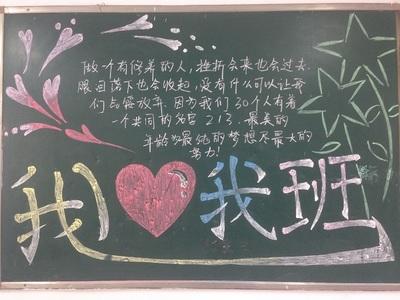 做一个有修养的人，挫折会来也会过去
眼泪落下也会收起，没有什么可以让我
们与容放弃，因为我们30个人有着
一个共同的名字213。最美的
年龄为最纯的梦想尽最大的
努力！
我 我班